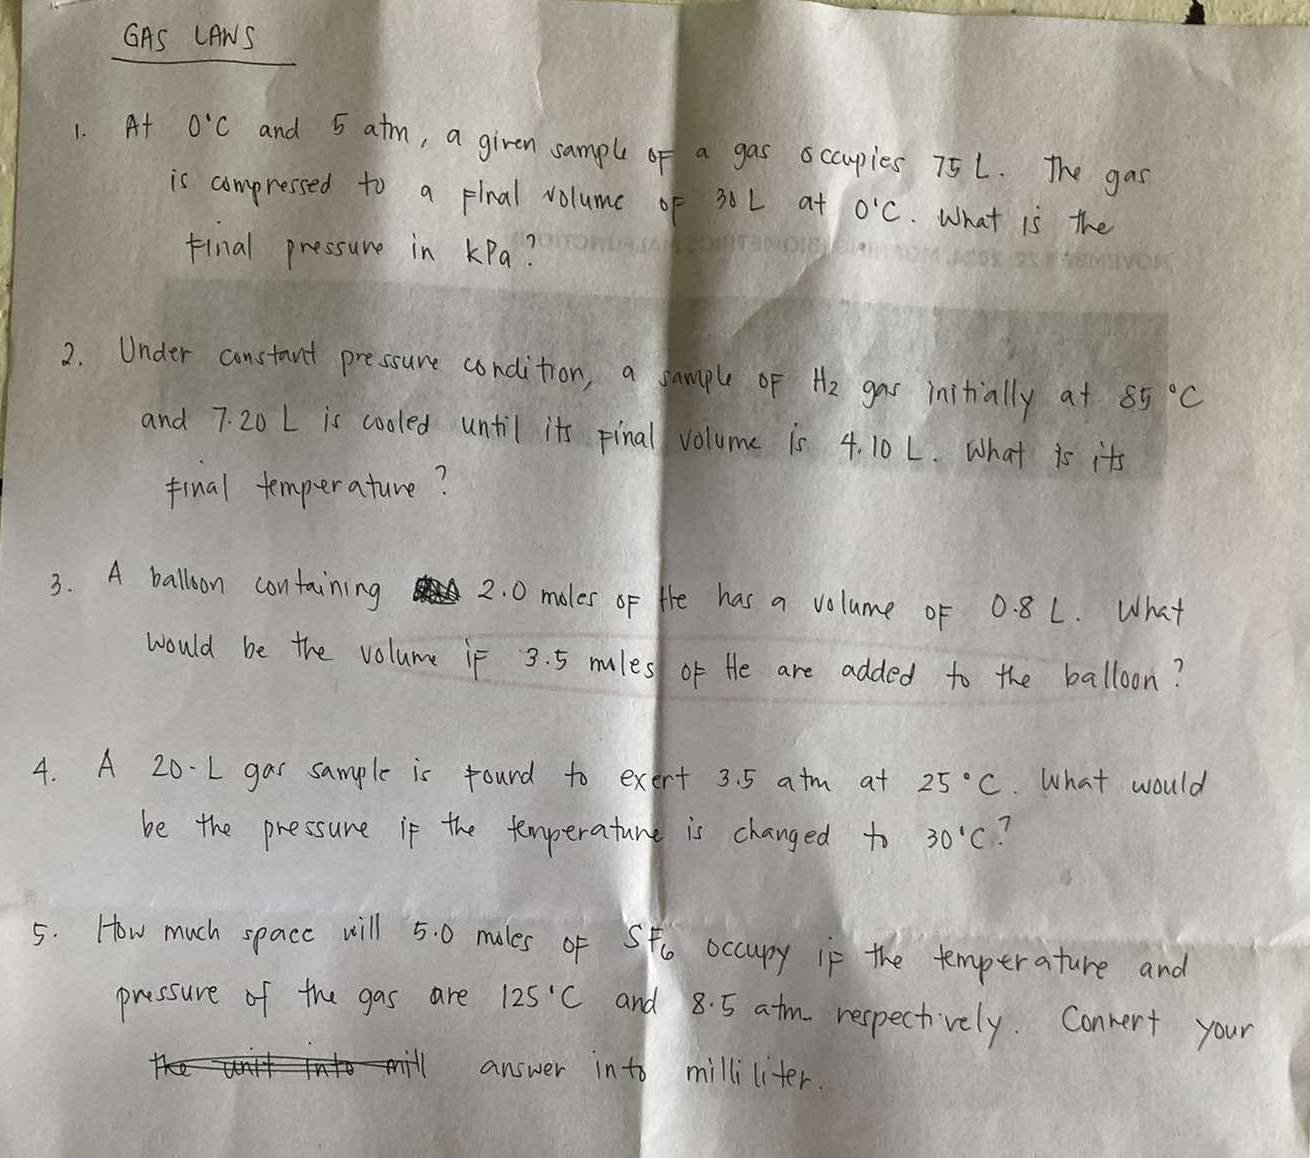 GAS LAWS
1. At 0°C and 5 atm, a given sample of a gas occupies 75 L. The gas
is compressed to a final volume of 30 L at 0°C. What is the
final pressure in kPa?
2. Under constant pressure condition, a sample of H₂ gas initially at 85 °C
and 7.20 L is cooled until its final volume is 4.10 L. What is its
final temperature?
3. A balloon containing 2.0 moles of He has a volume of 0.8 L. What
would be the volume if 3.5 moles of He are added to the balloon?
4. A 20-L gas sample is found to exert 3.5 atm at 25°C. What would
be the pressure if the temperature is changed to 30°C?
5. How much space will 5.0 moles of SF₆ occupy if the temperature and
pressure of the gas are 125°C and 8.5 atm respectively. Convert your
the unit into mill answer into milliliter.